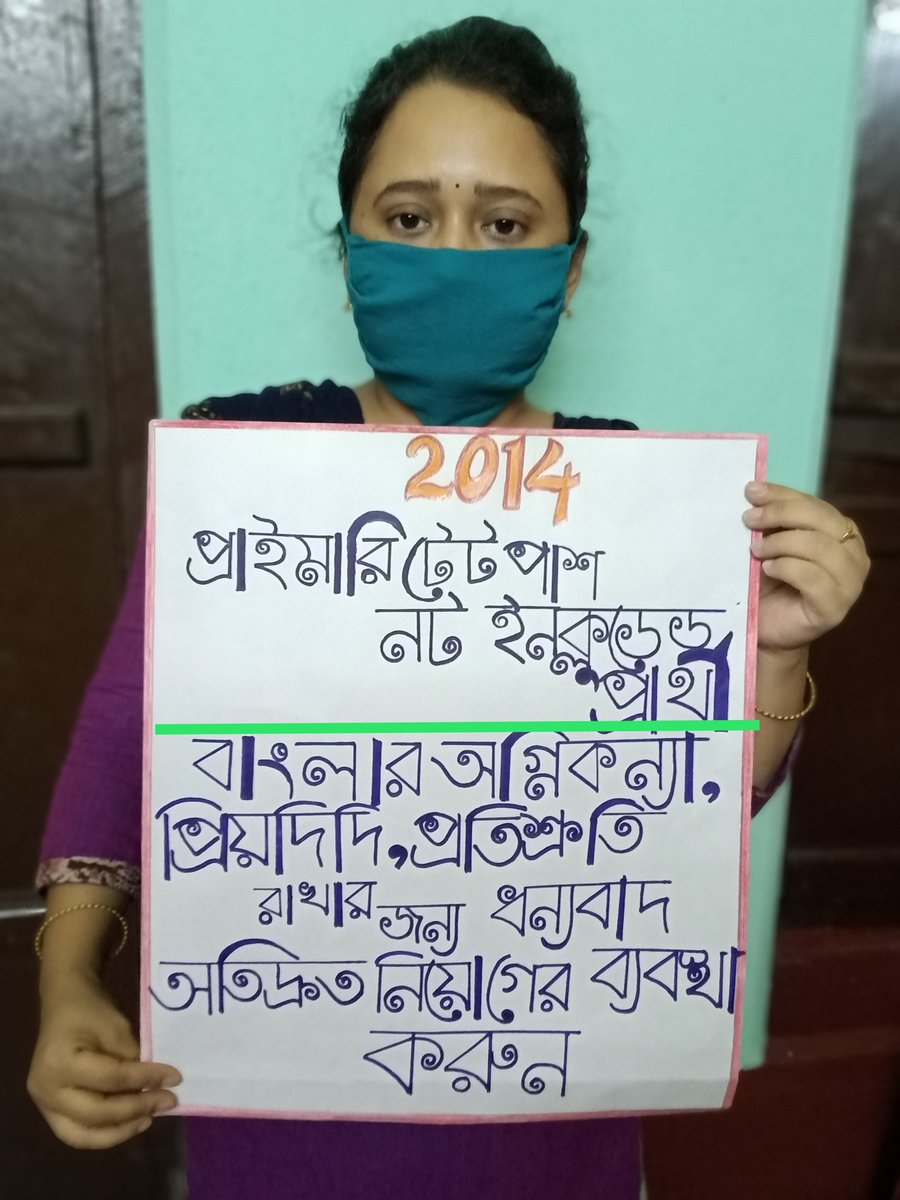 2014
প্রাইমারি টেট পাশ
নট ইনক্লুডেড
প্রার্থী
বাংলার অগ্নিকন্যা,
প্রিয়দিদি, প্রতিশ্রুতি
রাখার জন্য ধন্যবাদ
অতিদ্রুত নিয়োগের ব্যবস্থা
করুন